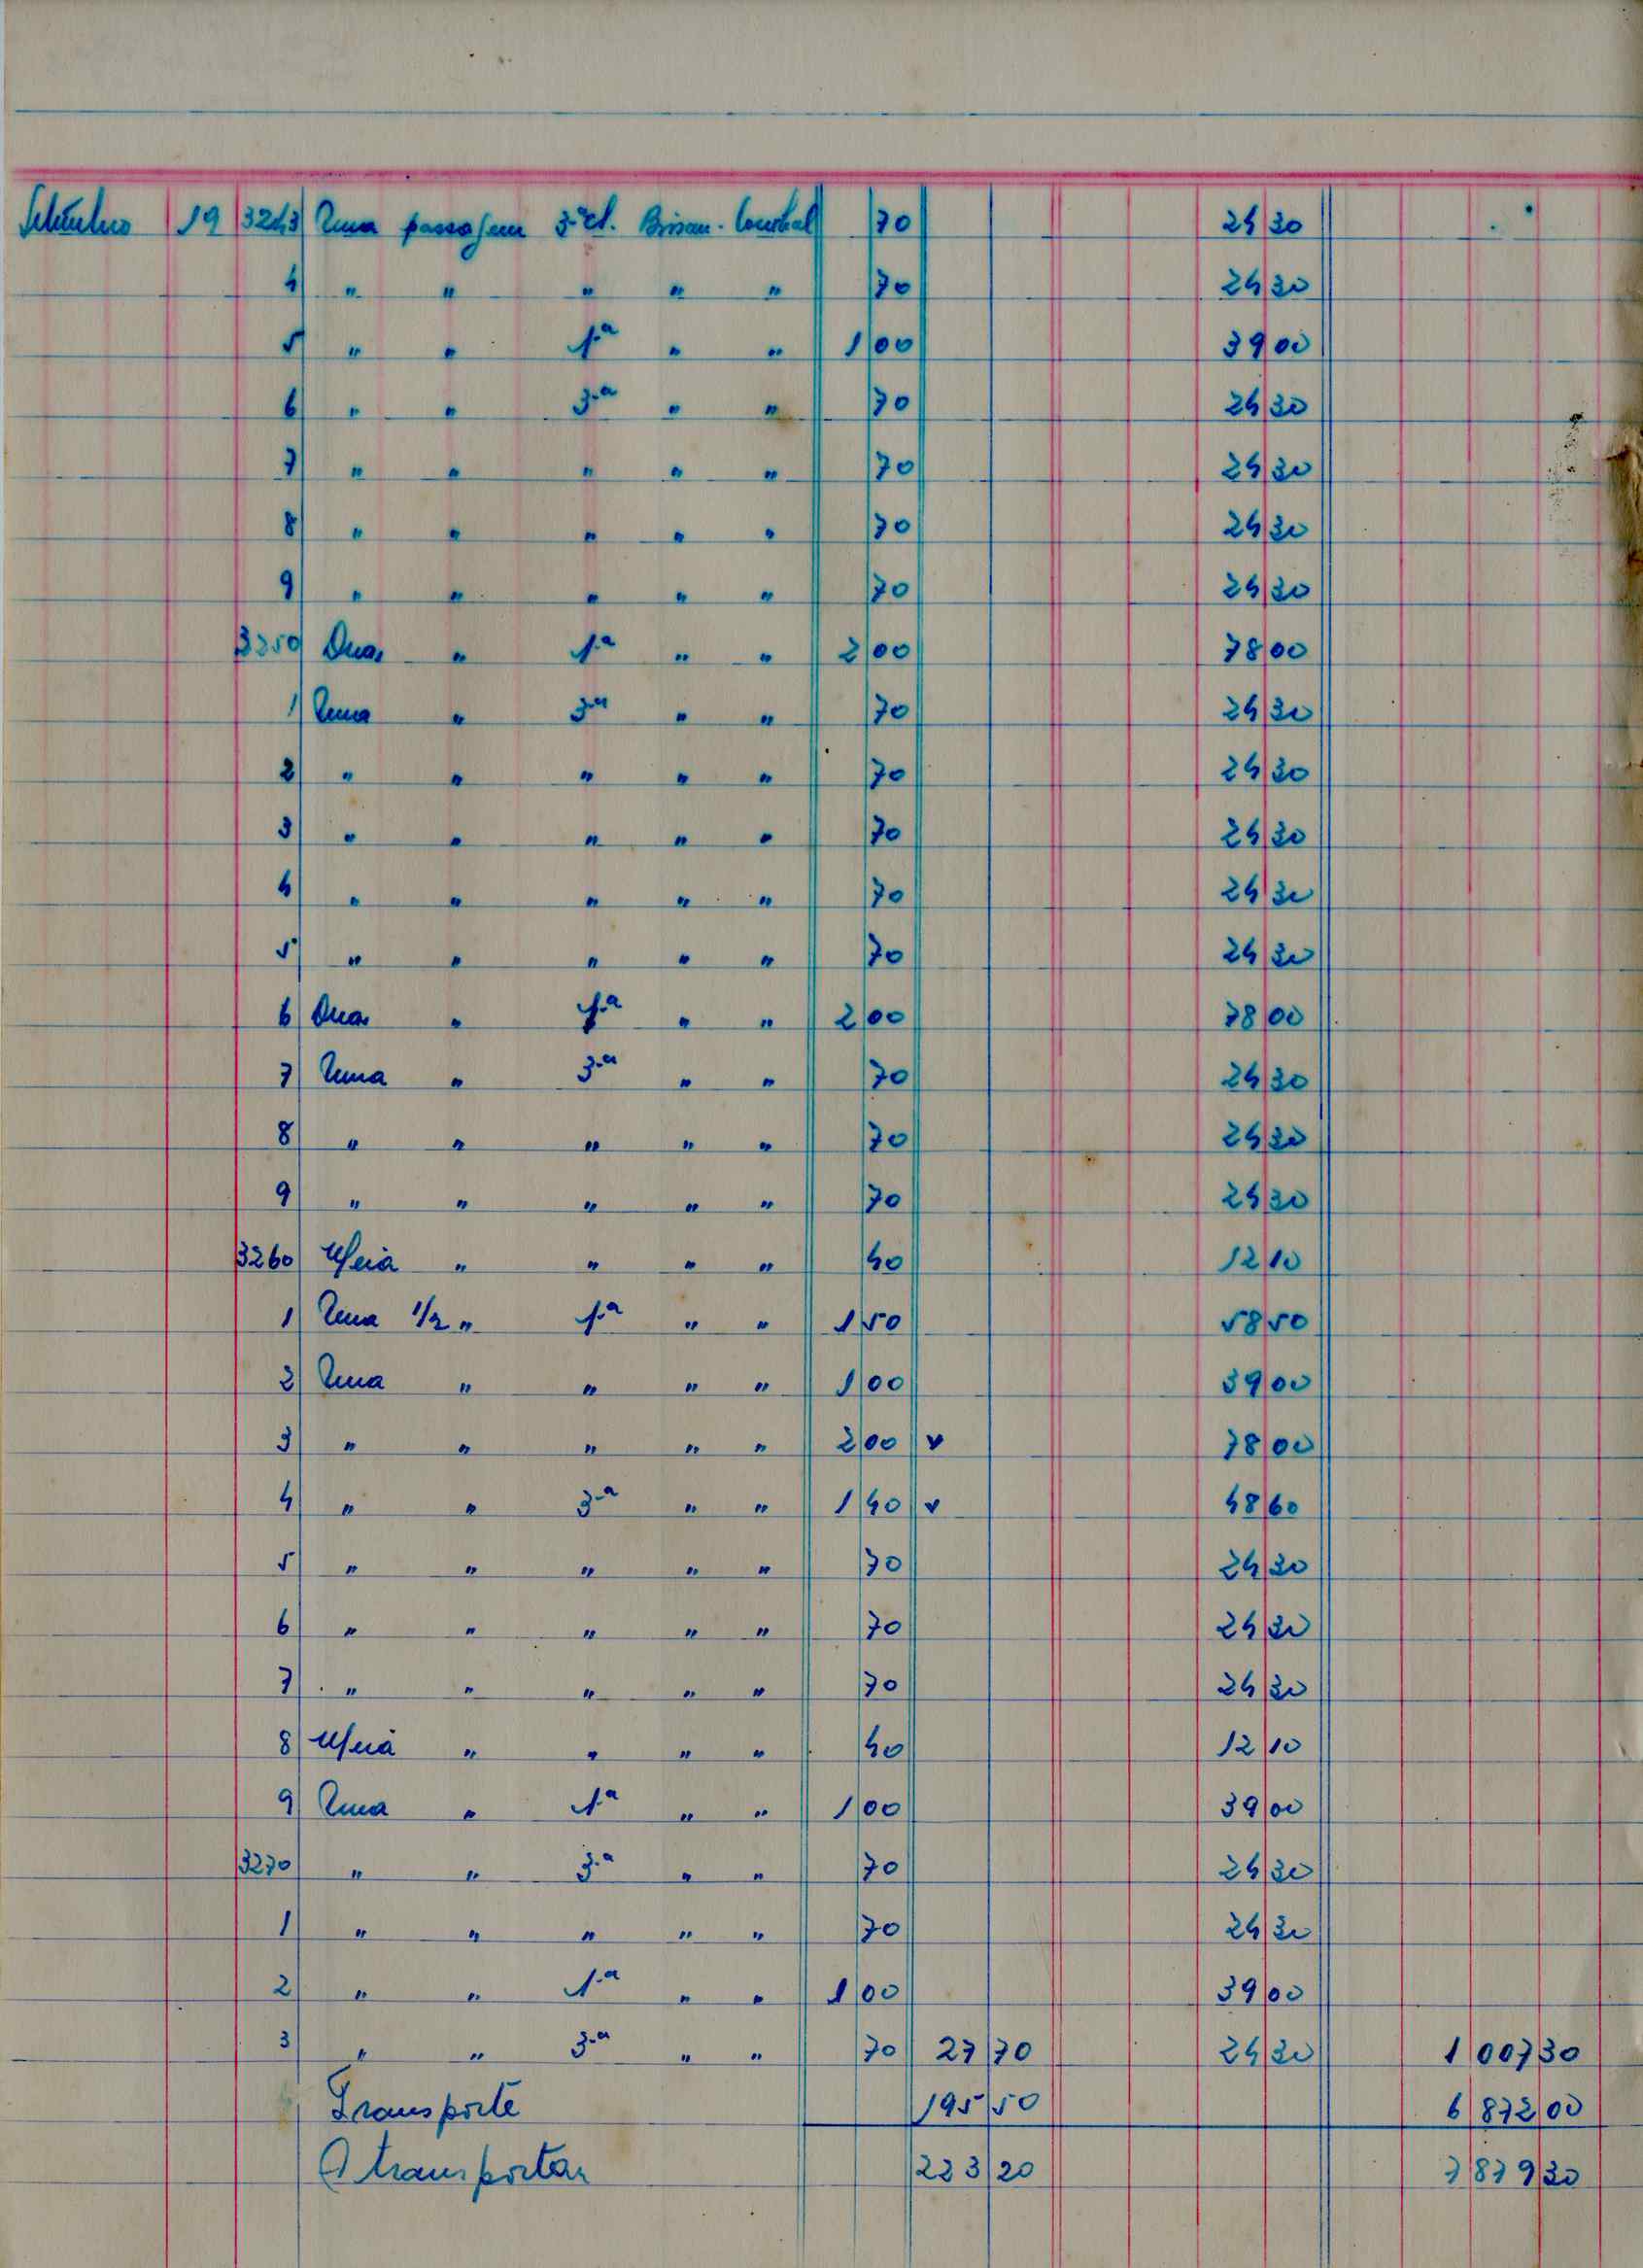 Setembro 19 3243 Uma passagem 3.ª cl. Bissau - 70 24 30
4 " " " " " 70 24 30
5 " " 1.ª " " 1 00 39 00
6 " " 3.ª " " 70 24 30
7 " " " " " 70 24 30
8 " " " " " 70 24 30
9 " " " " " 70 24 30
3250 Duas " 1.ª " " 2 00 78 00
1 Uma " 3.ª " " 70 24 30
2 " " " " " 70 24 30
3 " " " " " 70 24 30
4 " " " " " 70 24 30
5 " " " " " 70 24 30
6 Duas " 1.ª " " 2 00 78 00
7 Uma " 3.ª " " 70 24 30
8 " " " " " 70 24 30
9 " " " " " 70 24 30
3260 Meia " " " " 40 12 10
1 Uma 1/2 " 1.ª " " 1 50 58 50
2 Uma " " " " 1 00 39 00
3 " " " " " 2 00 v 78 00
4 " " 3.ª " " 1 40 v 48 60
5 " " " " " 70 24 30
6 " " " " " 70 24 30
7 " " " " " 70 24 30
8 Meia " " " " 40 12 10
9 Uma " 1.ª " " 1 00 39 00
3270 " " 3.ª " " 70 24 30
1 " " " " " 70 24 30
2 " " 1.ª " " 1 00 39 00
3 " " 3.ª " " 70 27 70 24 30 1 007 30
Transporte 195 50 6 872 00
A transportar 223 20 7 879 30